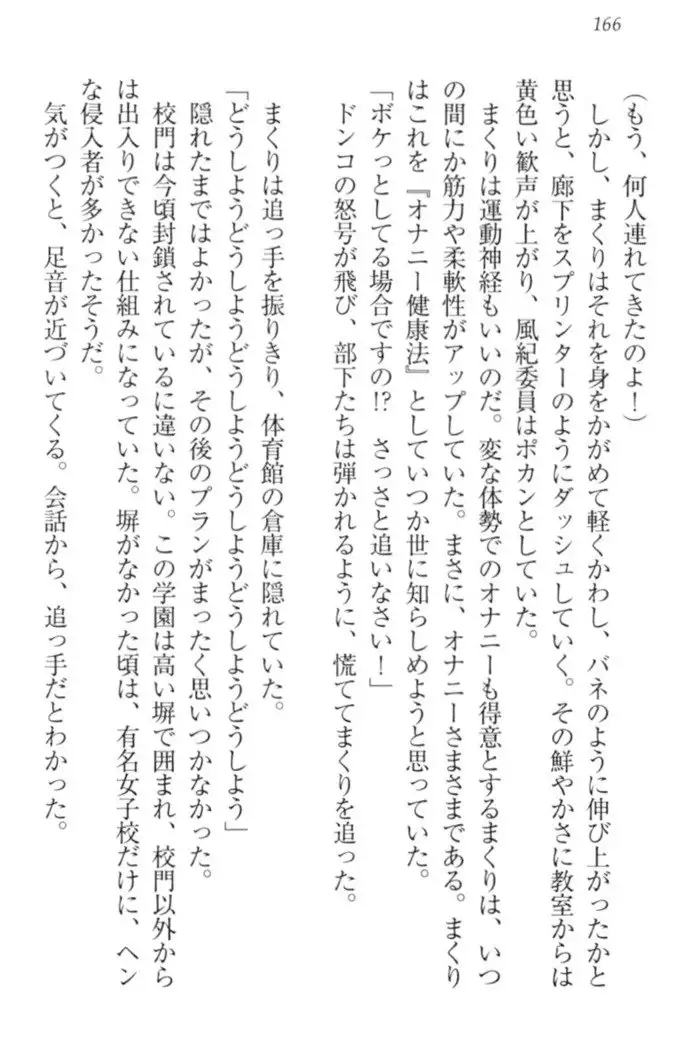 166
(もう、何人連れてきたのよ!)
しかし、まくりはそれを身をかがめて軽くかわし、バネのように伸び上がったかと
思うと、廊下をスプリンターのようにダッシュしていく。その鮮やかさに教室からは
黄色い歓声が上がり、風紀委員はポカンとしていた。
まくりは運動神経もいいのだ。変な体勢でのオナニーも得意とするまくりは、いつ
の間にか筋力や柔軟性がアップしていた。まさに、オナニーさまさまである。まくり
はこれを『オナニー健康法』としていつか世に知らしめようと思っていた。
「ボケっとしてる場合ですの!? さっさと追いなさい!」
ドンコの怒号が飛び、部下たちは弾かれるように、慌ててまくりを追った。
まくりは追っ手を振りきり、体育館の倉庫に隠れていた。
「どうしようどうしようどうしようどうしようどうしよう」
隠れたまではよかったが、その後のプランがまったく思いつかなかった。
校門は今頃封鎖されているに違いない。この学園は高い塀で囲まれ、校門以外から
は出入りできない仕組みになっていた。塀がなかった頃は、有名女子校だけに、ヘン
な侵入者が多かったそうだ。
気がつくと、足音が近づいてくる。会話から、追っ手だとわかった。